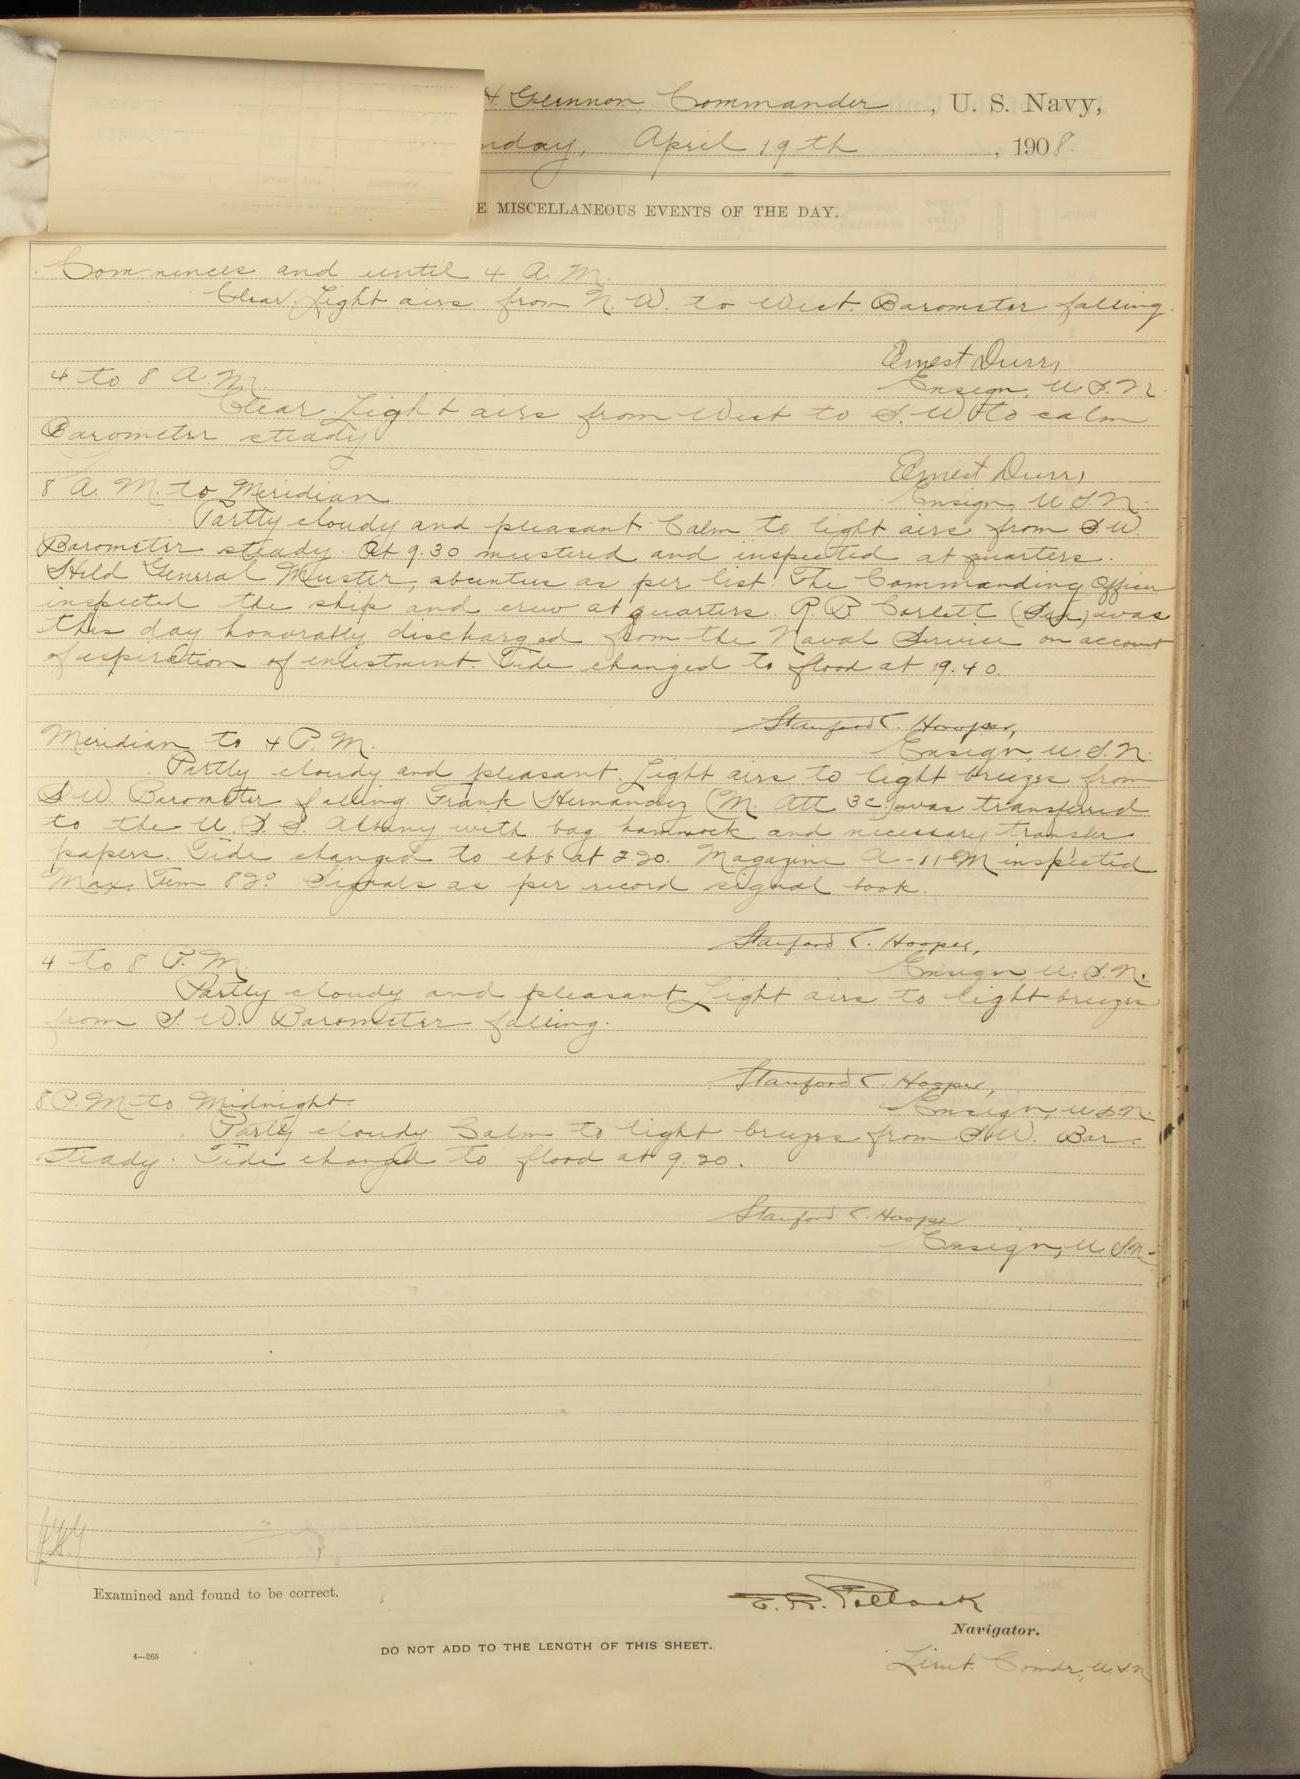 H. Gleannon, Commander, U. S. Navy,
nday, April 19th, 1908.
E MISCELLANEOUS EVENTS OF THE DAY.
Commences and until 4 A. M.
Clear. Light airs from N. W. to West. Barometer falling.
Ernest Durr,
4 to 8 A. M.
Ensign, U. S. N.
Clear. Light airs from West to S. W. to calm
Barometer steady
Ernest Durr,
8 A. M. to Meridian
Ensign, U S. N.
Partly cloudy and pleasant. Calm to light airs from S. W.
Barometer steady. At 9.30 mustered and inspected at quarters.
Held General Muster, absentees as per list. The Commanding Officer
inspected the ship and crew at quarters. R. B. Corlett (Sea) was
this day honorably discharged from the Naval Service on account
of expiration of enlistment. Tide changed to flood at 9.40.
Stanford C. Hooper,
Meridian to 4 P. M.
Ensign, U. S. N.
Partly cloudy and pleasant. Light airs to light breezes from
S. W. Barometer falling. Frank Hernandez (M. Att 3c.) was transferred
to the U. S. S. Albany with bag hammock and necessary transfer
papers. Tide changed to ebb at 2.20. Magazine A-11-M inspected
Max. Tem 82° Signals as per record signal book.
Stanford C. Hooper,
4 to 8 P. M
Ensign U. S. N.
Partly cloudy and pleasant. Light airs to light breezes
from S. W. Barometer falling.
Stanford C. Hooper,
8 P. M. to Midnight.
Ensign, U S. N.
Partly cloudy. Calm to light breezes from S. W. Bar.
steady. Tide changed to flood at 9.20.
Stanford C. Hooper
Ensign, U. S. N.
Examined and found to be correct.
E. R. Pollock
Navigator.
4—265
DO NOT ADD TO THE LENGTH OF THIS SHEET.
Lieut. Comdr., U S N